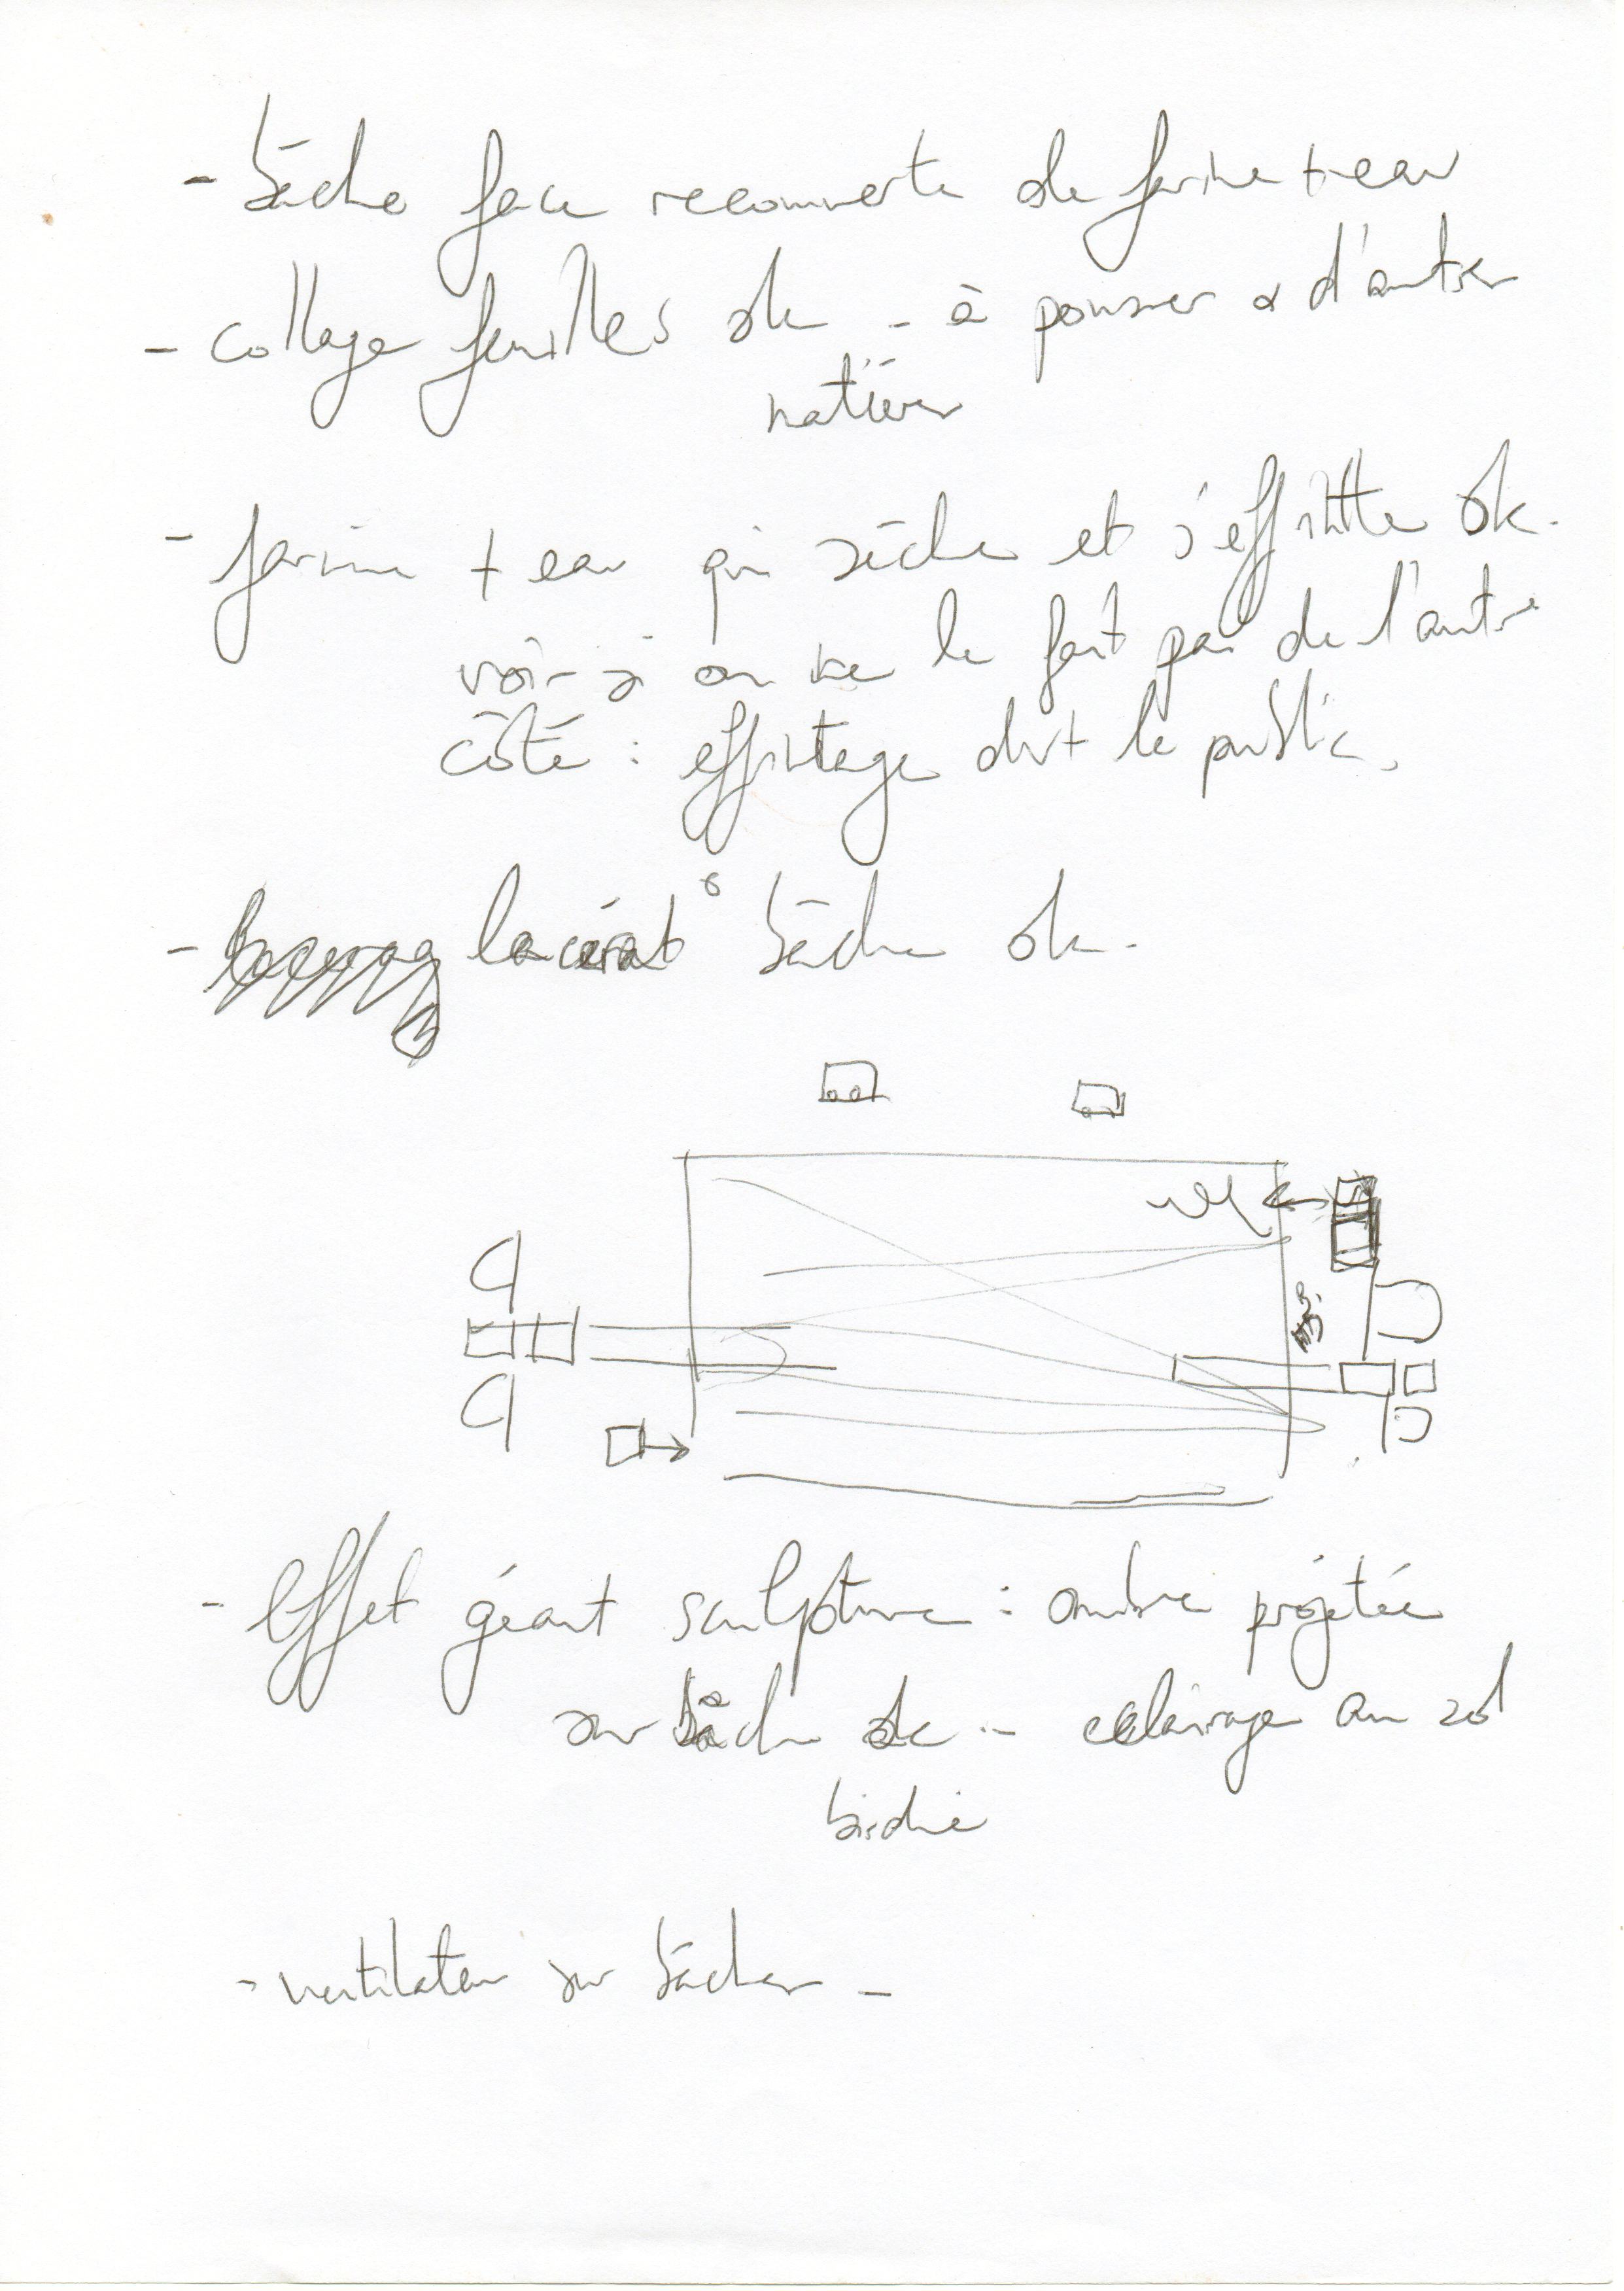 - bâche face recouverte de farine + eau
- collage feuilles ok - à pousser d'autres
matières
- farine + eau qui sèche et s'effritte ok.
voir si on ne le fait pas de l'autre
côté : effritage dvt le public.
- lacérat° bâche ok.
- Effet géant sculpture : ombre projetée
sur bâche ok - eclairage au sol
birdie
- ventilateur sur bâches -